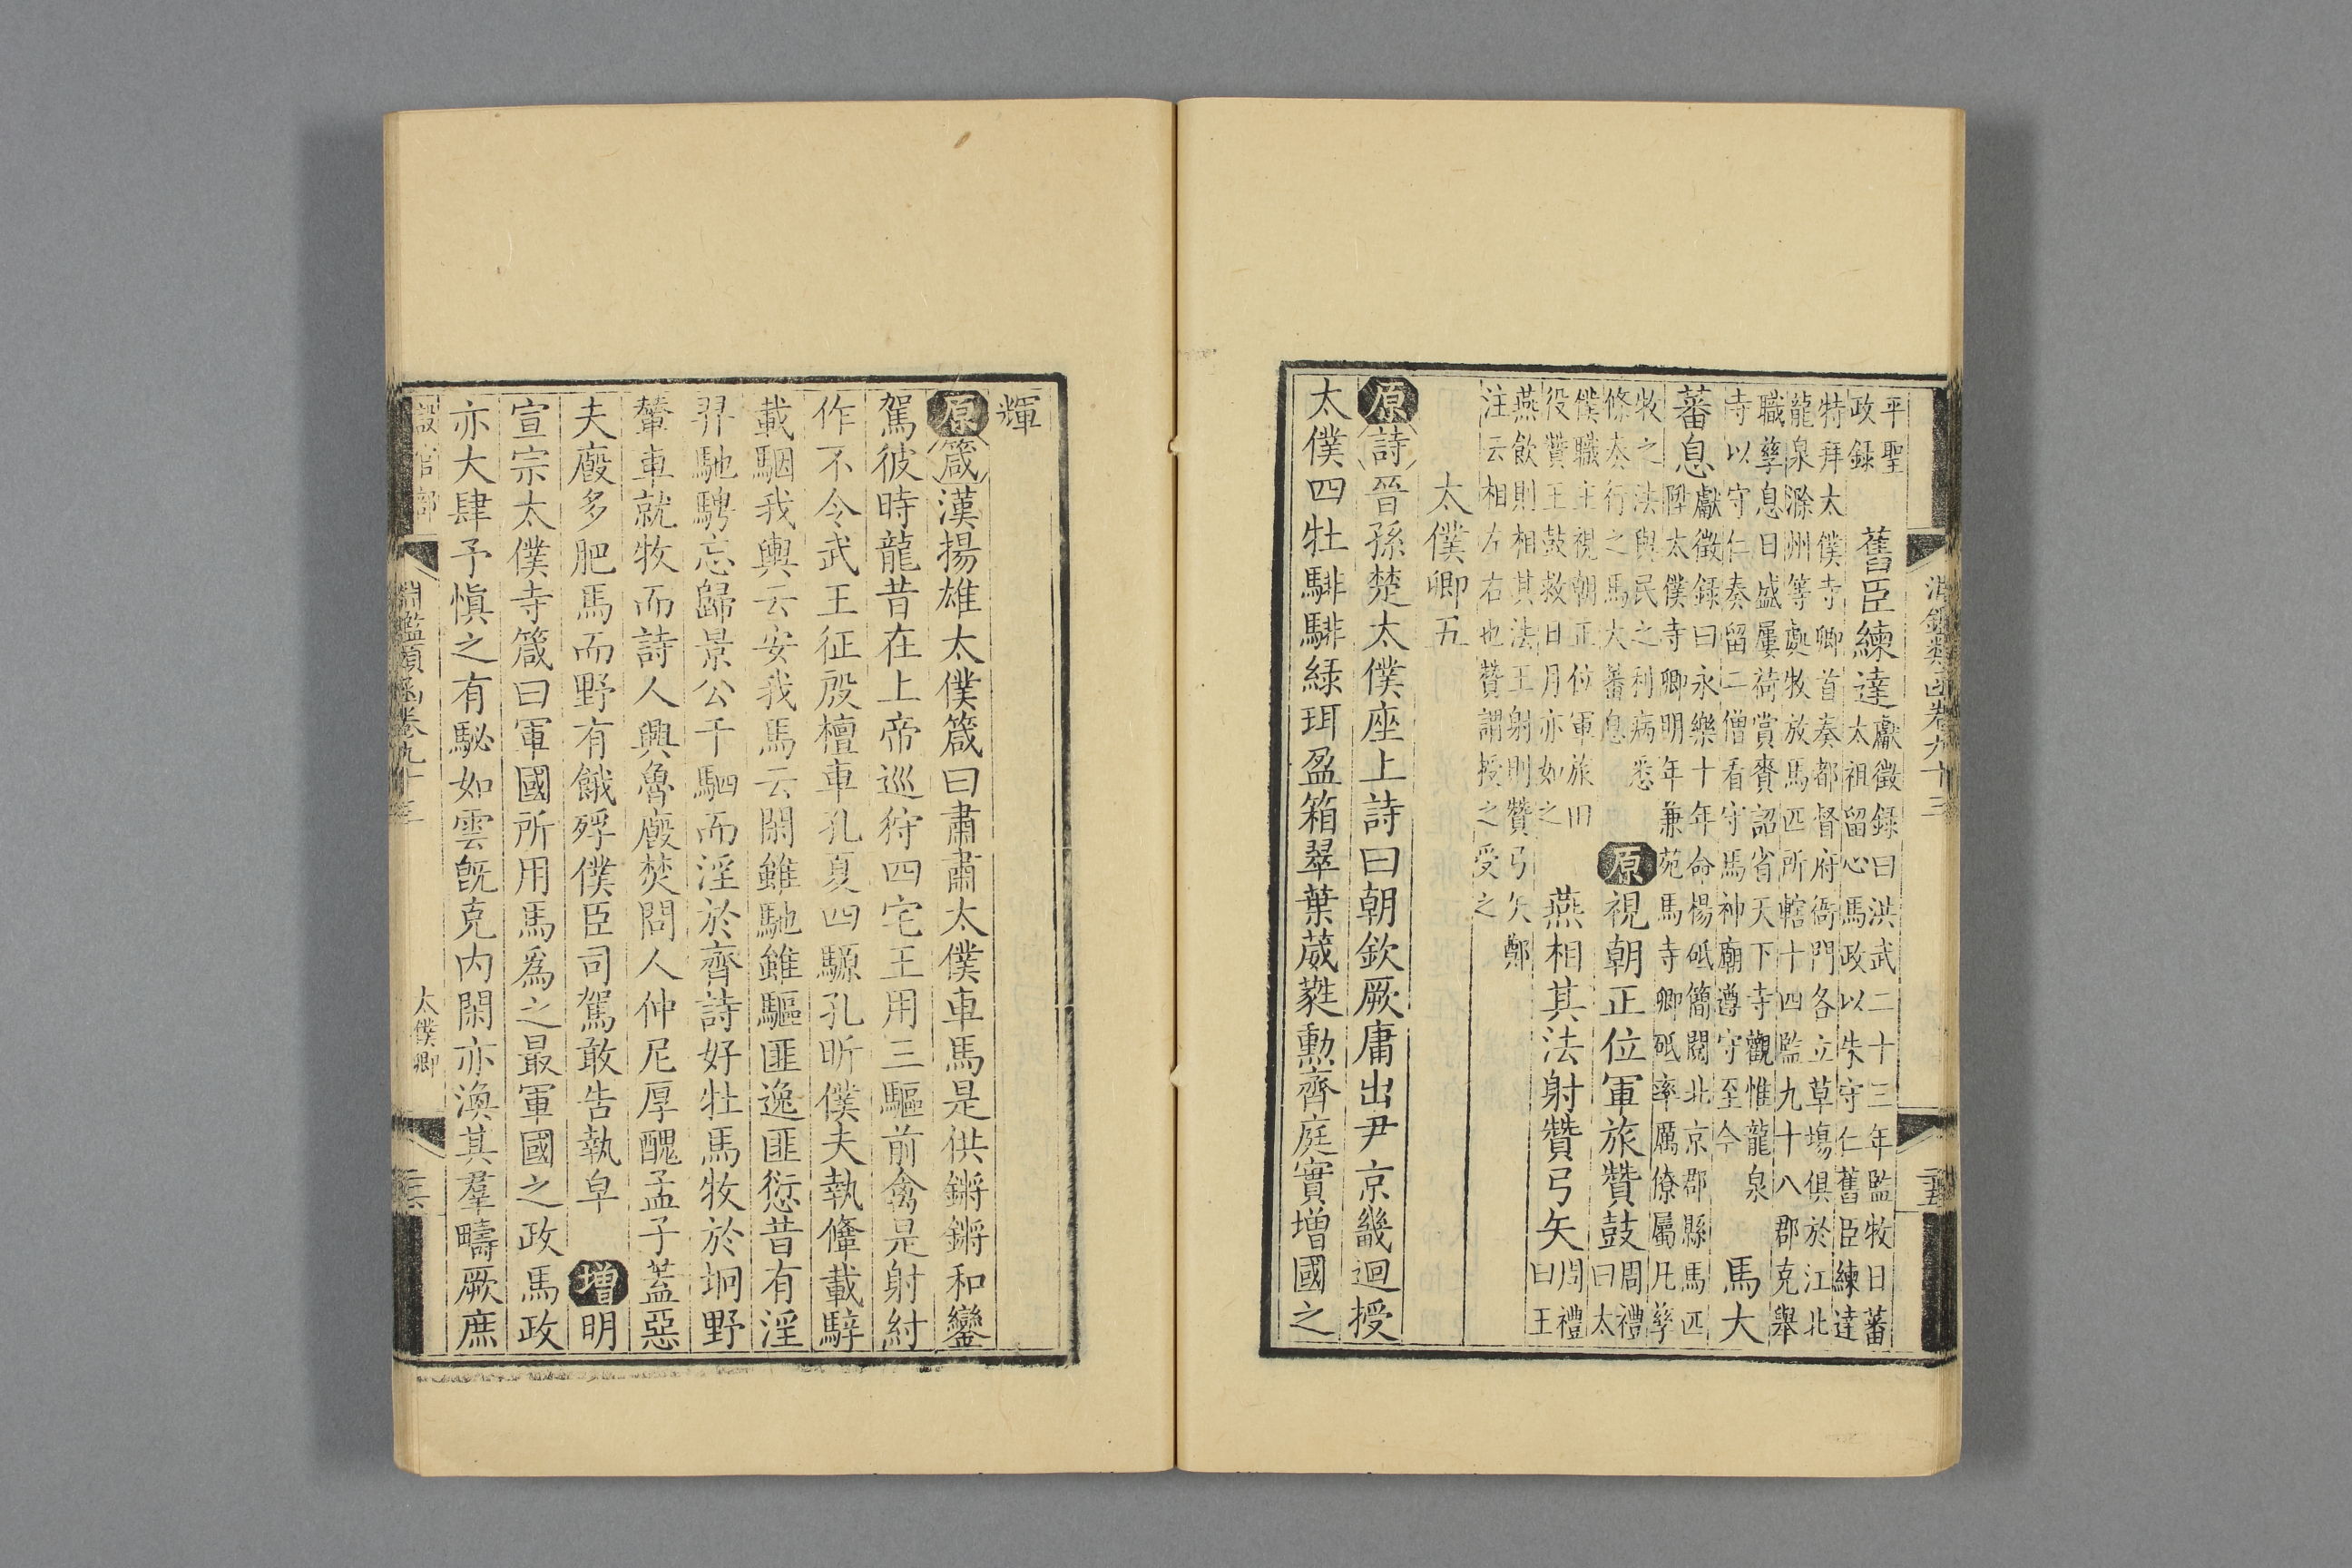 淵鑑類函卷九十三
二十五
平聖
政録
舊臣練達
獻徵録曰洪武二十三年監牧日蕃
太祖留心馬政以朱守仁舊臣練達
特拜太僕寺卿首奏都督府衙門各立草塲俱於江北
龍泉滁州等處牧放馬匹所轄十四監九十八郡克舉
職孳息日盛屢荷賞賚詔省天下寺觀惟龍泉
寺以守仁奏留二僧看守馬神廟遵守至今
馬大
蕃息
獻徵録曰永樂十年命楊砥簡閱北京郡縣馬匹
陞太僕寺卿明年兼苑馬寺卿砥率厲僚屬凡孳
牧之法與民之利病悉
條奏行之馬大蕃息
原視朝正位軍旅贊鼓
周禮
曰太
僕職主視朝正位軍旅田
役贊王鼓救日月亦如之
燕相其法射贊弓矢
周禮
曰王
燕飲則相其法王射則贊弓矢鄭
注云相左右也贊謂授之受之
太僕卿五
原詩晉孫楚太僕座上詩曰朝欽厥庸出尹京畿迴授
太僕四牡騑騑緑珥盈箱翠葉葳蕤勲齊庭實增國之
輝
原箴漢揚雄太僕箴曰肅肅太僕車馬是供鏘鏘和鑾
駕彼時龍昔在上帝巡狩四宅王用三驅前禽是射紂
作不令武王征殷檀車孔夏四騵孔昕僕夫執轡載騂
載駰我輿云安我馬云閑雖馳雖驅匪逸匪愆昔有淫
羿馳騁忘歸景公千駟而淫於齊詩好牡馬牧於坰野
輦車就牧而詩人興魯廏焚問人仲尼厚醜孟子蓋惡
夫廏多肥馬而野有餓殍僕臣司駕敢告執皁 增明
宣宗太僕寺箴曰軍國所用馬爲之最軍國之政馬政
亦大肆予愼之有駜如雲旣克内閑亦渙其羣疇厥庶
設官部
淵鑑類函卷九十三
太僕卿